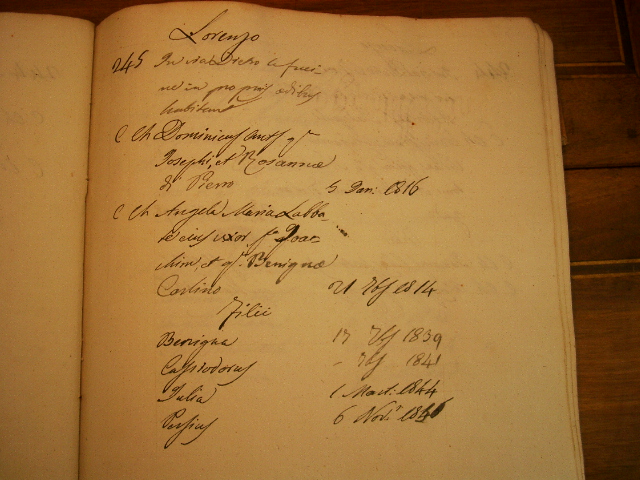 Lorenzo
245 In via Dietro le fuci-
ne in propriis ædibus
habitant
C Ch Dominicus qm
Josephi, et Rosannæ
di Pierro 5 Jan: 1816
C Ch Angela Maria Labba-
te ejus uxor Joac-
chim, et qm Benignæ
Carlino 21 7bſ 1814
Filii
Benigna 17 7bſ 1839
Cassiodorus – 7bſ 1841
Julia 1 Mart: 1844
Persius 6 Novr 1846